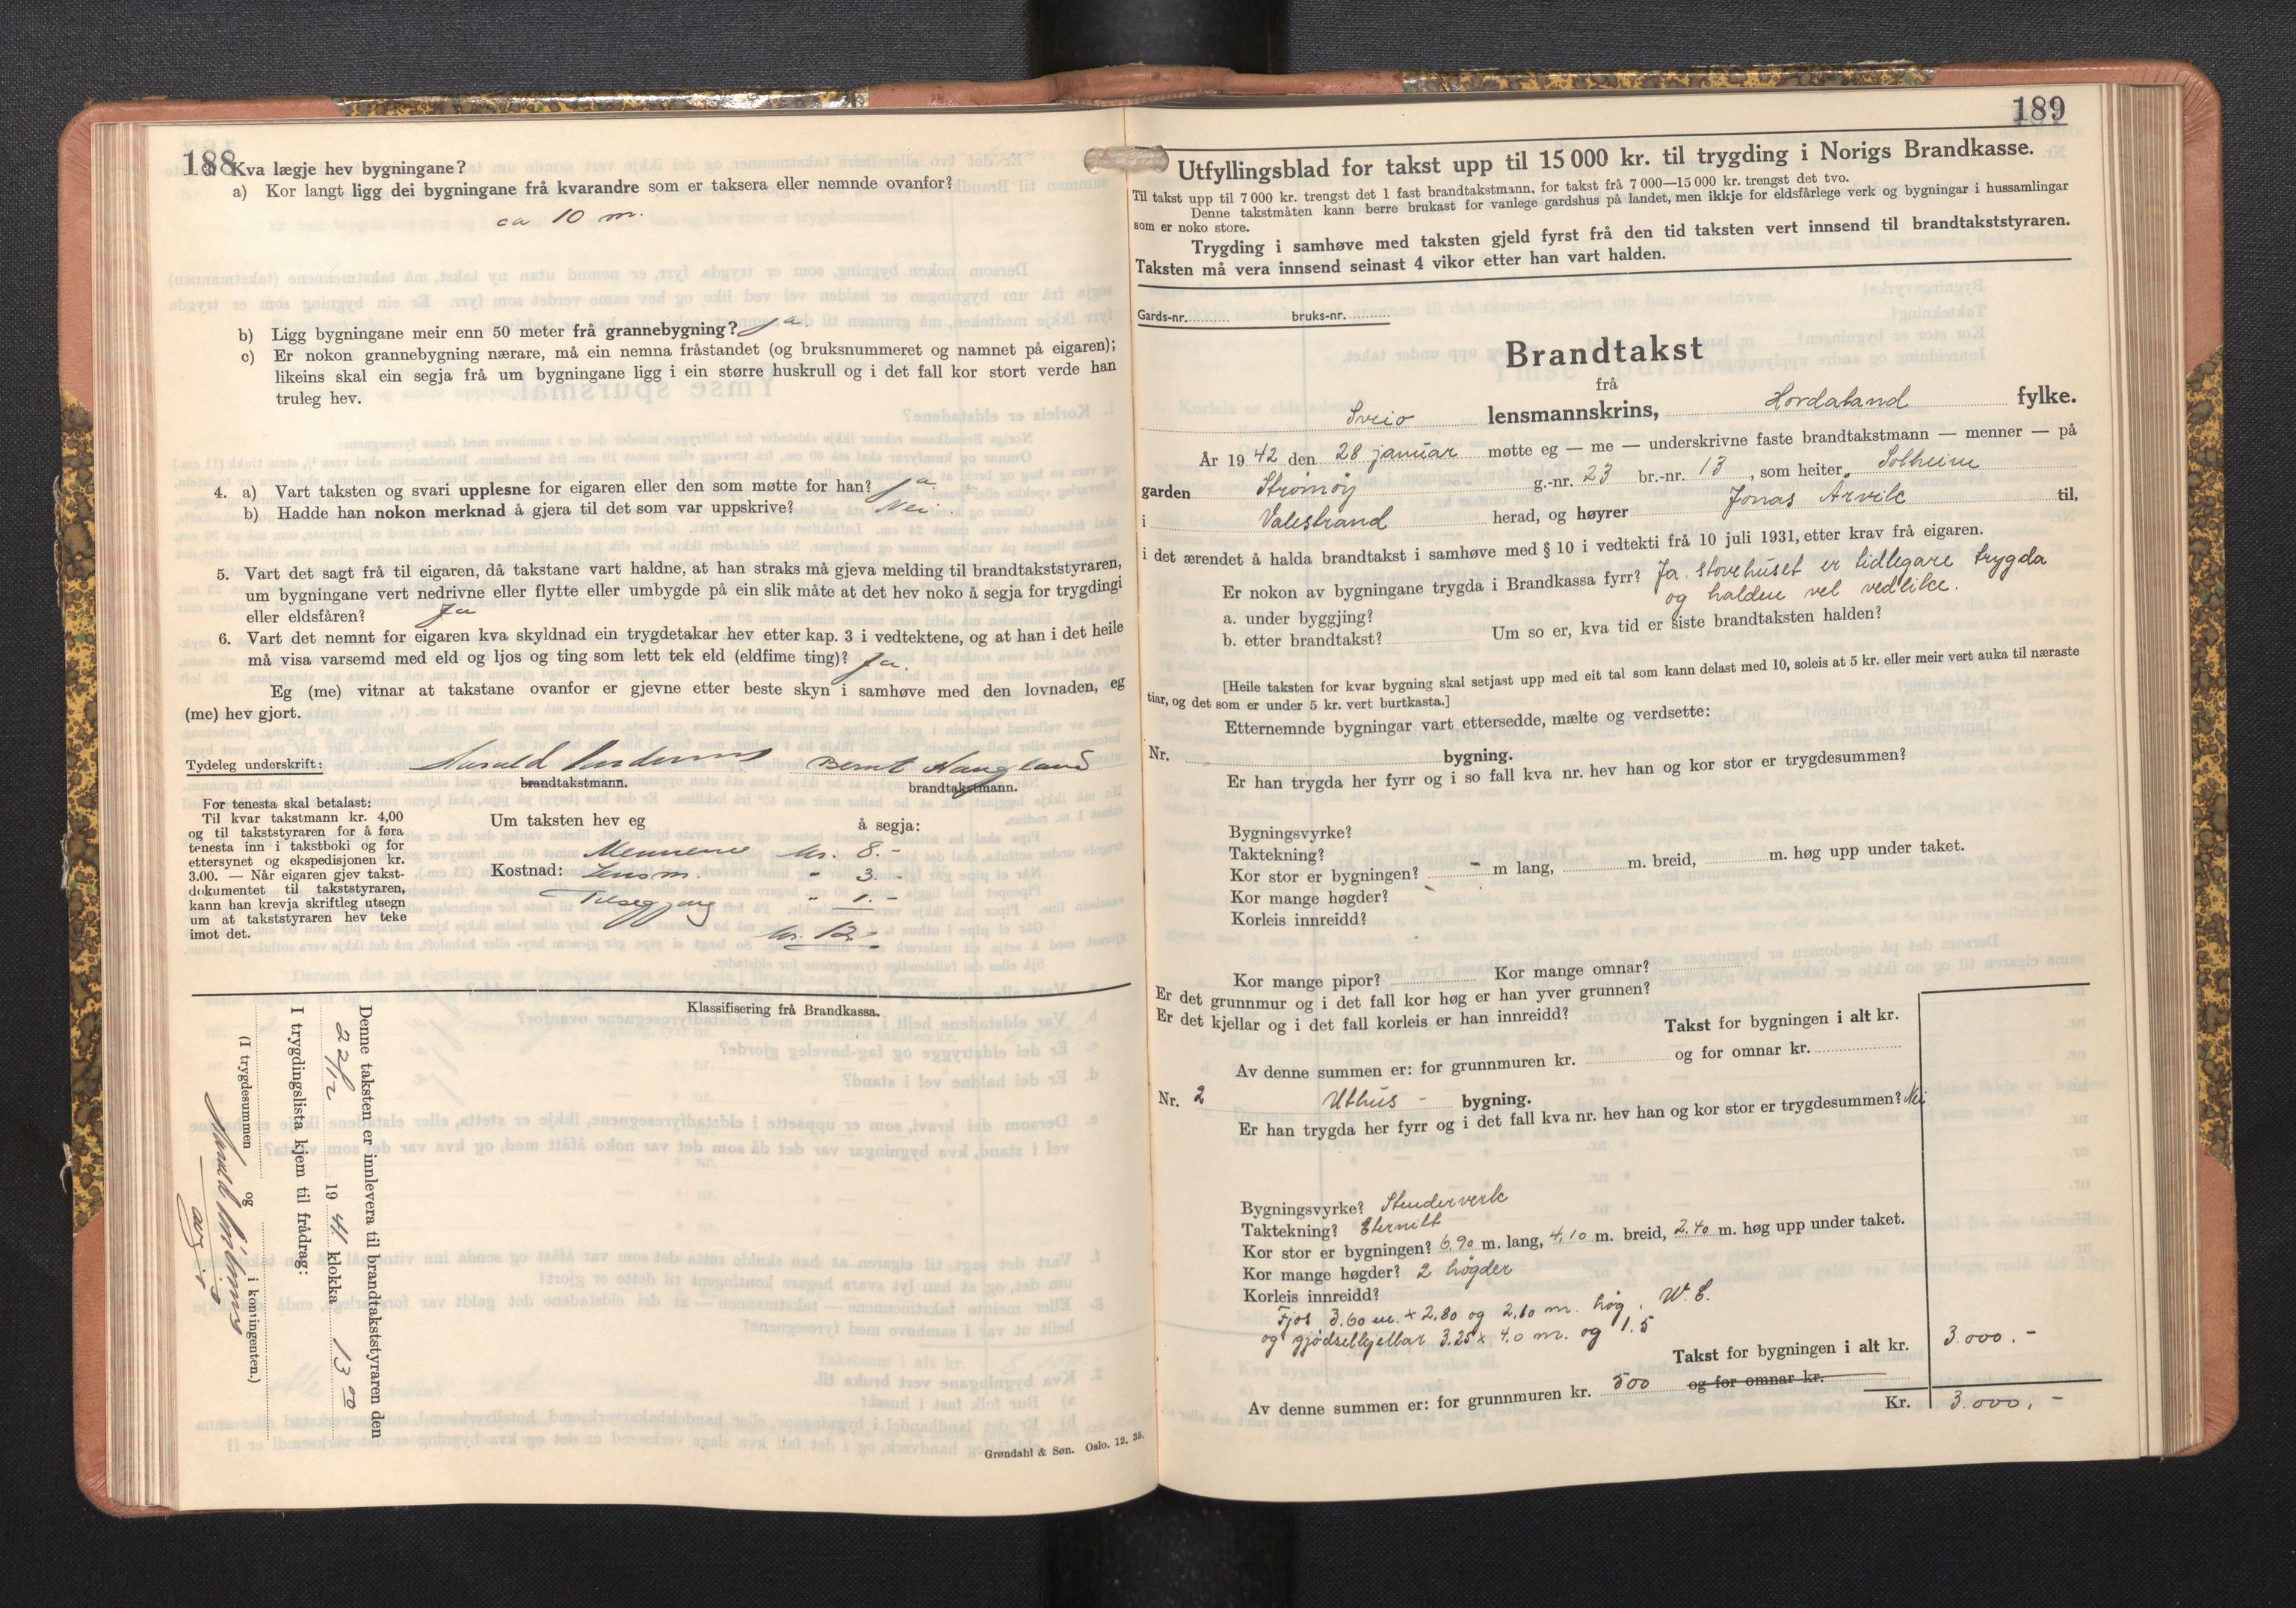 188
3. Kva lægje hev bygningane?
a) Kor langt ligg dei bygningane frå kvarandre som er taksera eller nemnde ovanfor?
ca 10 m.
b) Ligg bygningane meir enn 50 meter frå grannebygning? Ja.
c) Er nokon grannebygning nærare, må ein nemna fråstandet (og bruksnummeret og namnet på eigaren);
likeins skal ein segja frå um bygningane ligg i ein større huskrull og i det fall kor stort verde han
truleg hev.
4. a) Vart taksten og svari upplesne for eigaren eller den som møtte for han? Ja.
b) Hadde han nokon merknad å gjera til det som var uppskrive? Nei.
5. Vart det sagt frå til eigaren, då takstane vart haldne, at han straks må gjeva melding til brandtakststyraren,
um bygningane vert nedrivne eller flytte eller umbygde på ein slik måte at det hev noko å segja for trygdingi
eller eldsfåren? Ja
6. Vart det nemnt for eigaren kva skyldnad ein trygdetakar hev etter kap. 3 i vedtektene, og at han i det heile
må visa varsemd med eld og ljos og ting som lett tek eld (eldfime ting)? Ja.
Eg (me) vitnar at takstane ovanfor er gjevne etter beste skyn i samhøve med den lovnaden, eg
(me) hev gjort.
Tydeleg underskrift: Harald Bernt Haugland
brandtakstmann. brandtakstmann.
For tenesta skal betalast:
Til kvar takstmann kr. 4,00
og til takststyraren for å føra
tenesta inn i takstboki og for
ettersynet og ekspedisjonen kr.
3.00. — Når eigaren gjev takst-
dokumentet til takststyraren,
kann han krevja skriftleg utsegn
um at takststyraren hev teke
imot det.
Um taksten hev eg å segja:
Mennene kr. 8.-
Kostnad: Lensm. " 3.-
Tilseggjing " 1.-
kr. 12.-
Klassifisering frå Brandkassa.
Denne taksten er innlevera til brandtakststyraren den
22/12 1941 klokka 13 00
I trygdingslista kjem til frådrag:
(I trygdesummen og i kontingenten.)
Grøndahl & Søn. Oslo. 12. 35.
189
Utfyllingsblad for takst upp til 15 000 kr. til trygding i Norigs Brandkasse.
Til takst upp til 7 000 kr. trengst det 1 fast brandtakstmann, for takst frå 7 000—15 000 kr. trengst det tvo.
Denne takstmåten kann berre brukast for vanlege gardshus på landet, men ikkje for eldsfårlege verk og bygningar i hussamlingar
som er noko store.
Trygding i samhøve med taksten gjeld fyrst frå den tid taksten vert innsend til brandtakststyraren.
Taksten må vera innsend seinast 4 vikor etter han vart halden.
Gards-nr. bruks-nr.
Brandtakst
frå
Sveio lensmannskrins, Hordaland fylke.
År 1942 den 28 januar møtte eg — me — underskrivne faste brandtakstmann — menner — på
garden Strømøy g.-nr. 23 br.-nr. 13, som heiter Solheim
i Valestrand herad, og høyrer Jonas Arvik til,
i det ærendet å halda brandtakst i samhøve med § 10 i vedtekti frå 10 juli 1931, etter krav frå eigaren.
Er nokon av bygningane trygda i Brandkassa fyrr? Ja. stovehuset er tidlegare trygda
og halden vel vedlike.
a. under byggjing?
b. etter brandtakst? Um so er, kva tid er siste brandtaksten halden?
[Heile taksten for kvar bygning skal setjast upp med eit tal som kann delast med 10, soleis at 5 kr. eller meir vert auka til næraste
tiar, og det som er under 5 kr. vert burtkasta.]
Etternemnde bygningar vart ettersedde, mælte og verdsette:
Nr. bygning.
Er han trygda her fyrr og i so fall kva nr. hev han og kor stor er trygdesummen?
Bygningsvyrke?
Taktekning?
Kor stor er bygningen? - m lang, m. breid, m. høg upp under taket.
Kor mange høgder?
Korleis innreidd?
Kor mange pipor? Kor mange omnar?
Er det grunnmur og i det fall kor høg er han yver grunnen?
Er det kjellar og i det fall korleis er han innreidd?
Takst for bygningen i alt kr.
Av denne summen er: for grunnmuren kr. og for omnar kr.
Nr. 2 Uthus - bygning.
Er han trygda her fyrr og i det fall kva nr. hev han og kor stor er trygdesummen? Nei
Bygningsvyrke? Stenderverk
Taktekning? Eternitt
Kor stor er bygningen? 6,90 m. lang, 4,10 m. breid, 2.40 m. høg upp under taket.
Kor mange høgder? 2 høgder
Korleis innreidd?
Fjos 3.60 m. x 2.80 og 2,10 m. høg. W.C.
og gjødselkjellar 3.25 x 4.0 m. og 1.5
Takst for bygningen i alt kr. 3.000.-
Av denne summen er: for grunnmuren kr. 500 og for omnar kr.
Kr. 3.000,-